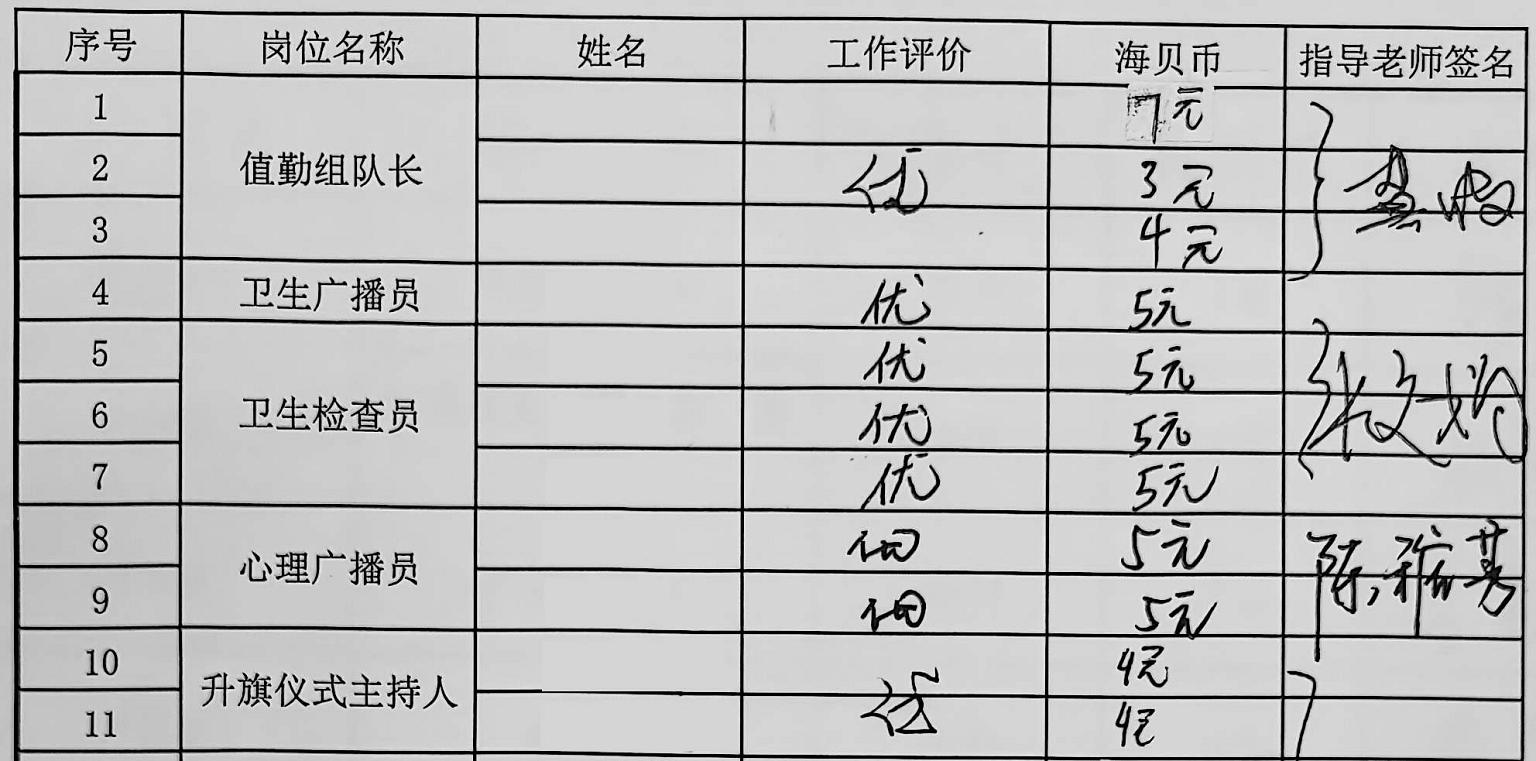 序号 岗位名称 姓名 工作评价 海贝币 指导老师签名
1 7元
2 值勤组队长 优 3元
3 4元
4 卫生广播员 优 5元
5 优 5元
6 卫生检查员 优 5元
7 优 5元
8 心理广播员 5元
9 5元
10 升旗仪式主持人 优 4元
11 4元